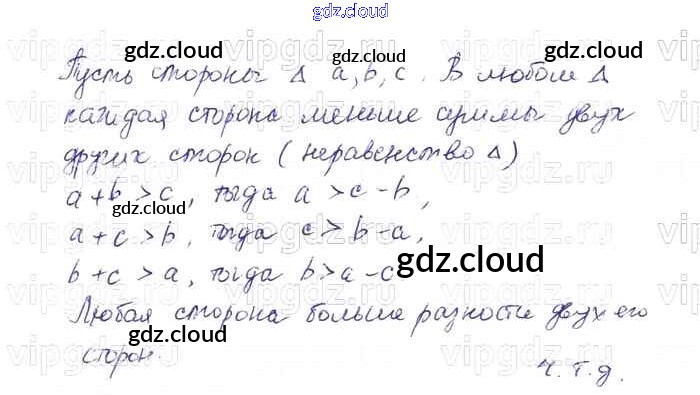 gdz.cloud
Пусть стороны Δ a, b, c. В любом Δ
каждая сторона меньше суммы двух
других сторон (неравенство Δ)
a + b > c, тогда a > c - b,
a + c > b, тогда c > b - a,
b + c > a, тогда b > a - c
Любая сторона больше разности двух его
сторон.
ч.т.д.
gdz.cloud
gdz.cloud
gdz.cloud
gdz.cloud
gdz.cloud
gdz.cloud
gdz.cloud